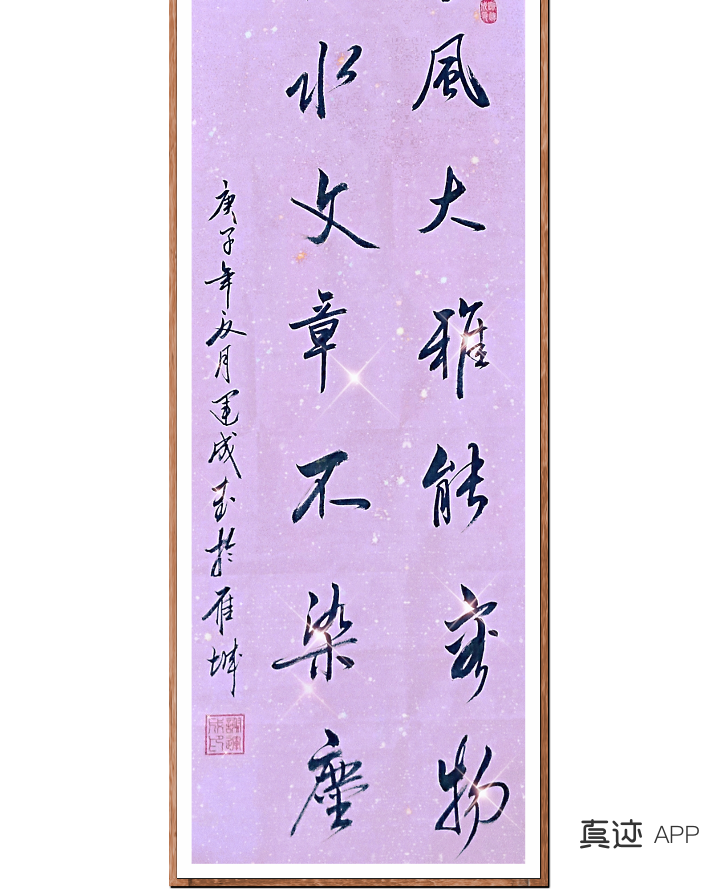 風大雅能容物
水文章不染塵
庚子年夏月運成書於雁城
謝運成印
真迹 APP